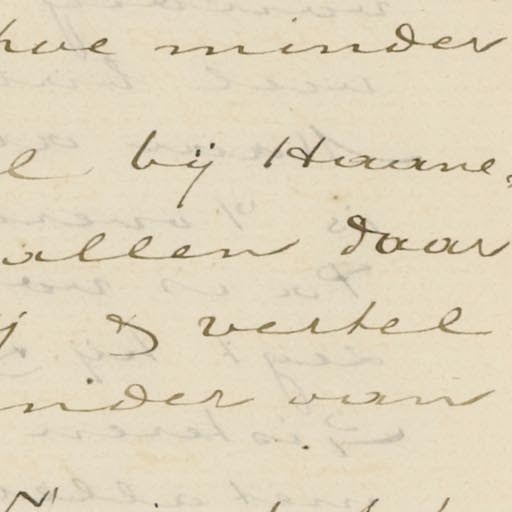 hoe minder
bij Haane
allen daar
& vertel
inder van